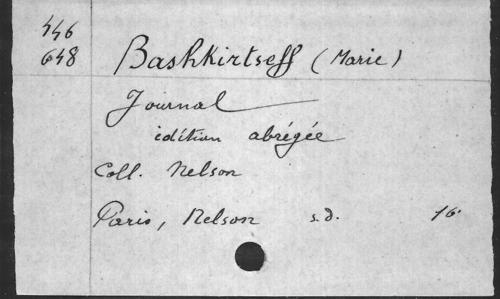 446
648
Bashkirtseff (Marie)
Journal
édition abrégée
Coll. Nelson
Paris, Nelson s.d. 16.